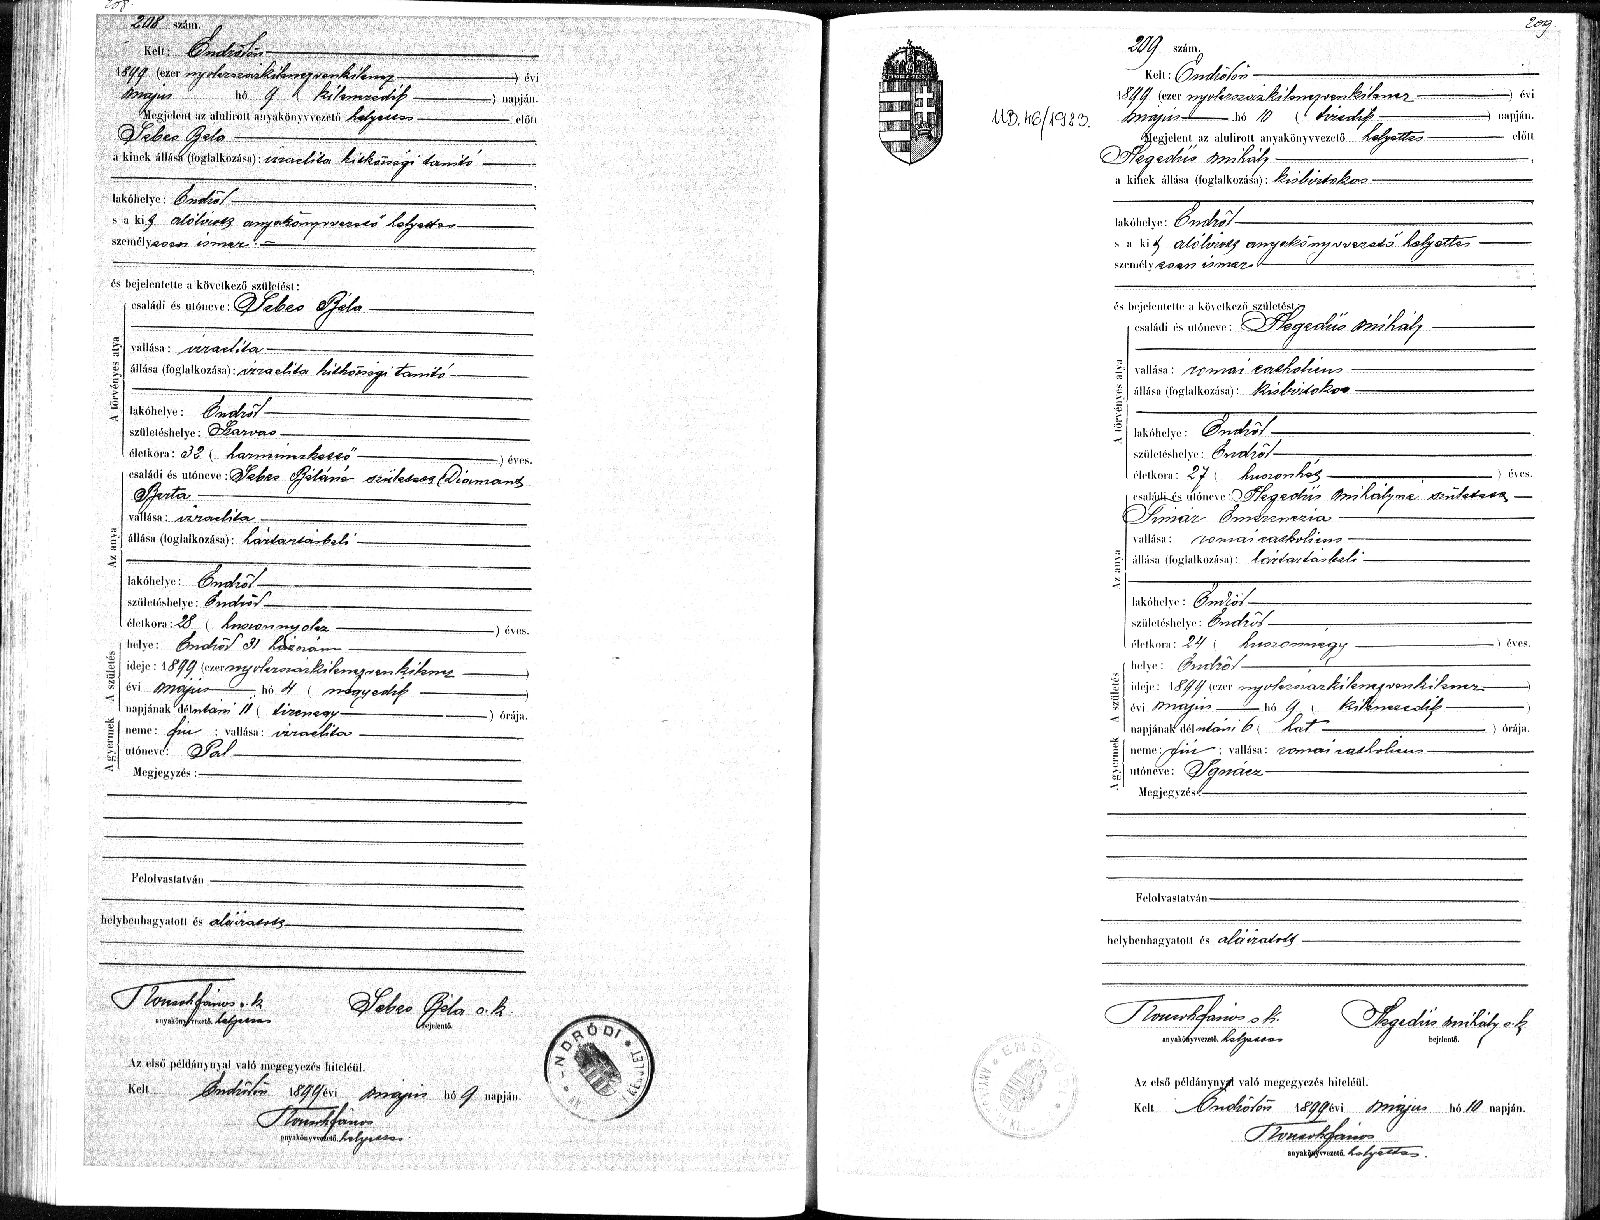 208 szám.
Kelt: Endrődön
1899 (ezer nyolczszázkilenczvenkilencz) évi
május hó 9 (kilenczedik) napján.
Megjelent az alulirott anyakönyvvezető helyettes előtt
Sebes Béla
a kinek állása (foglalkozása): izraelita hitközségi tanító
lakóhelye: Endrőd
s a kit alólírott anyakönyvvezető helyettes
személyesen ismer.
és bejelentette a következő születést:
A törvényes atya
családi és utóneve: Sebes Béla
vallása: izraelita
állása (foglalkozása): izraelita hitközségi tanító
lakóhelye: Endrőd
születéshelye: Szarvas
életkora: 32 (harminczkettő) éves.
Az anya
családi és utóneve: Sebes Béláné született Diamant
Berta
vallása: izraelita
állása (foglalkozása): háztartásbeli
lakóhelye: Endrőd
születéshelye: Endrőd
életkora: 28 (huszonnyolcz) éves.
A születés
helye: Endrőd 31 házszám
ideje: 1899 (ezer nyolczszázkilenczvenkilencz)
évi május hó 4 (negyedik)
napjának délutáni 11 (tizenegy) órája.
A gyermek
neme: fiú; vallása: izraelita
utóneve: Pál
Megjegyzés:
Felolvastatván
helybenhagyatott és aláíratott
János s. k. Sebes Béla s. k.
anyakönyvvezető. helyettes bejelentő.
Az első példánynyal való megegyezés hiteléül.
Kelt Endrődön 1899 évi május hó 9 napján.
János
anyakönyvvezető. helyettes.
ENDRŐDI
209
209 szám.
Kelt: Endrődön
UD. 46/1923.
1899 (ezer nyolczszázkilenczvenkilencz) évi
május hó 10 (tizedik) napján.
Megjelent az alulirott anyakönyvvezető helyettes előtt
Hegedűs Mihály
a kinek állása (foglalkozása): kisbirtokos
lakóhelye: Endrőd
s a kit alólírott anyakönyvvezető helyettes
személyesen ismer
és bejelentette a következő születést:
A törvényes atya
családi és utóneve: Hegedűs Mihály
vallása: római catholicus
állása (foglalkozása): kisbirtokos
lakóhelye: Endrőd
születéshelye: Endrőd
életkora: 27 (huszonhét) éves.
Az anya
családi és utóneve: Hegedűs Mihályné született
Tímár Emerenczia
vallása: római catholicus
állása (foglalkozása): háztartásbeli
lakóhelye: Endrőd
születéshelye: Endrőd
életkora: 24 (huszonnégy) éves.
A születés
helye: Endrőd
ideje: 1899 (ezer nyolczszázkilenczvenkilencz)
évi május hó 9 (kilenczedik)
napjának délutáni 6 (hat) órája.
A gyermek
neme: fiú; vallása: római catholicus
utóneve: Ignácz
Megjegyzés:
Felolvastatván
helybenhagyatott és aláíratott
János s. k. Hegedűs Mihály s. k.
anyakönyvvezető. helyettes bejelentő.
Az első példánynyal való megegyezés hiteléül.
Kelt Endrődön 1899 évi május hó 10 napján.
János
anyakönyvvezető. helyettes.